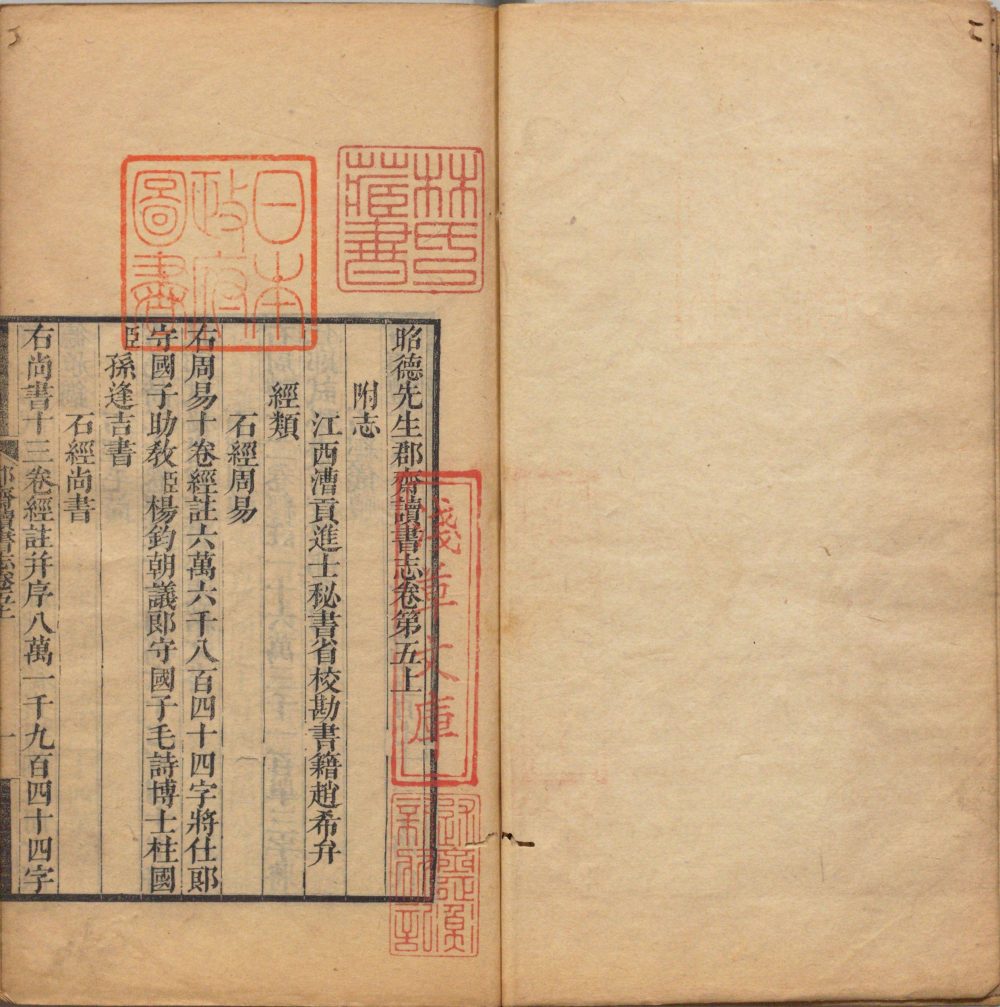 昭德先生郡齋讀書志卷第五上
附志
江西漕貢進士秘書省校勘書籍趙希弁
經類
石經周易
右周易十卷經註六萬六千八百四十四字將仕郎
守國子助敎臣楊鈞朝議郎守國子毛詩博士柱國
臣孫逢吉書
石經尚書
右尚書十三卷經註幷序八萬一千九百四十四字
郡齋讀書志卷五上
一
林氏藏書
日本政府圖書
淺草文庫